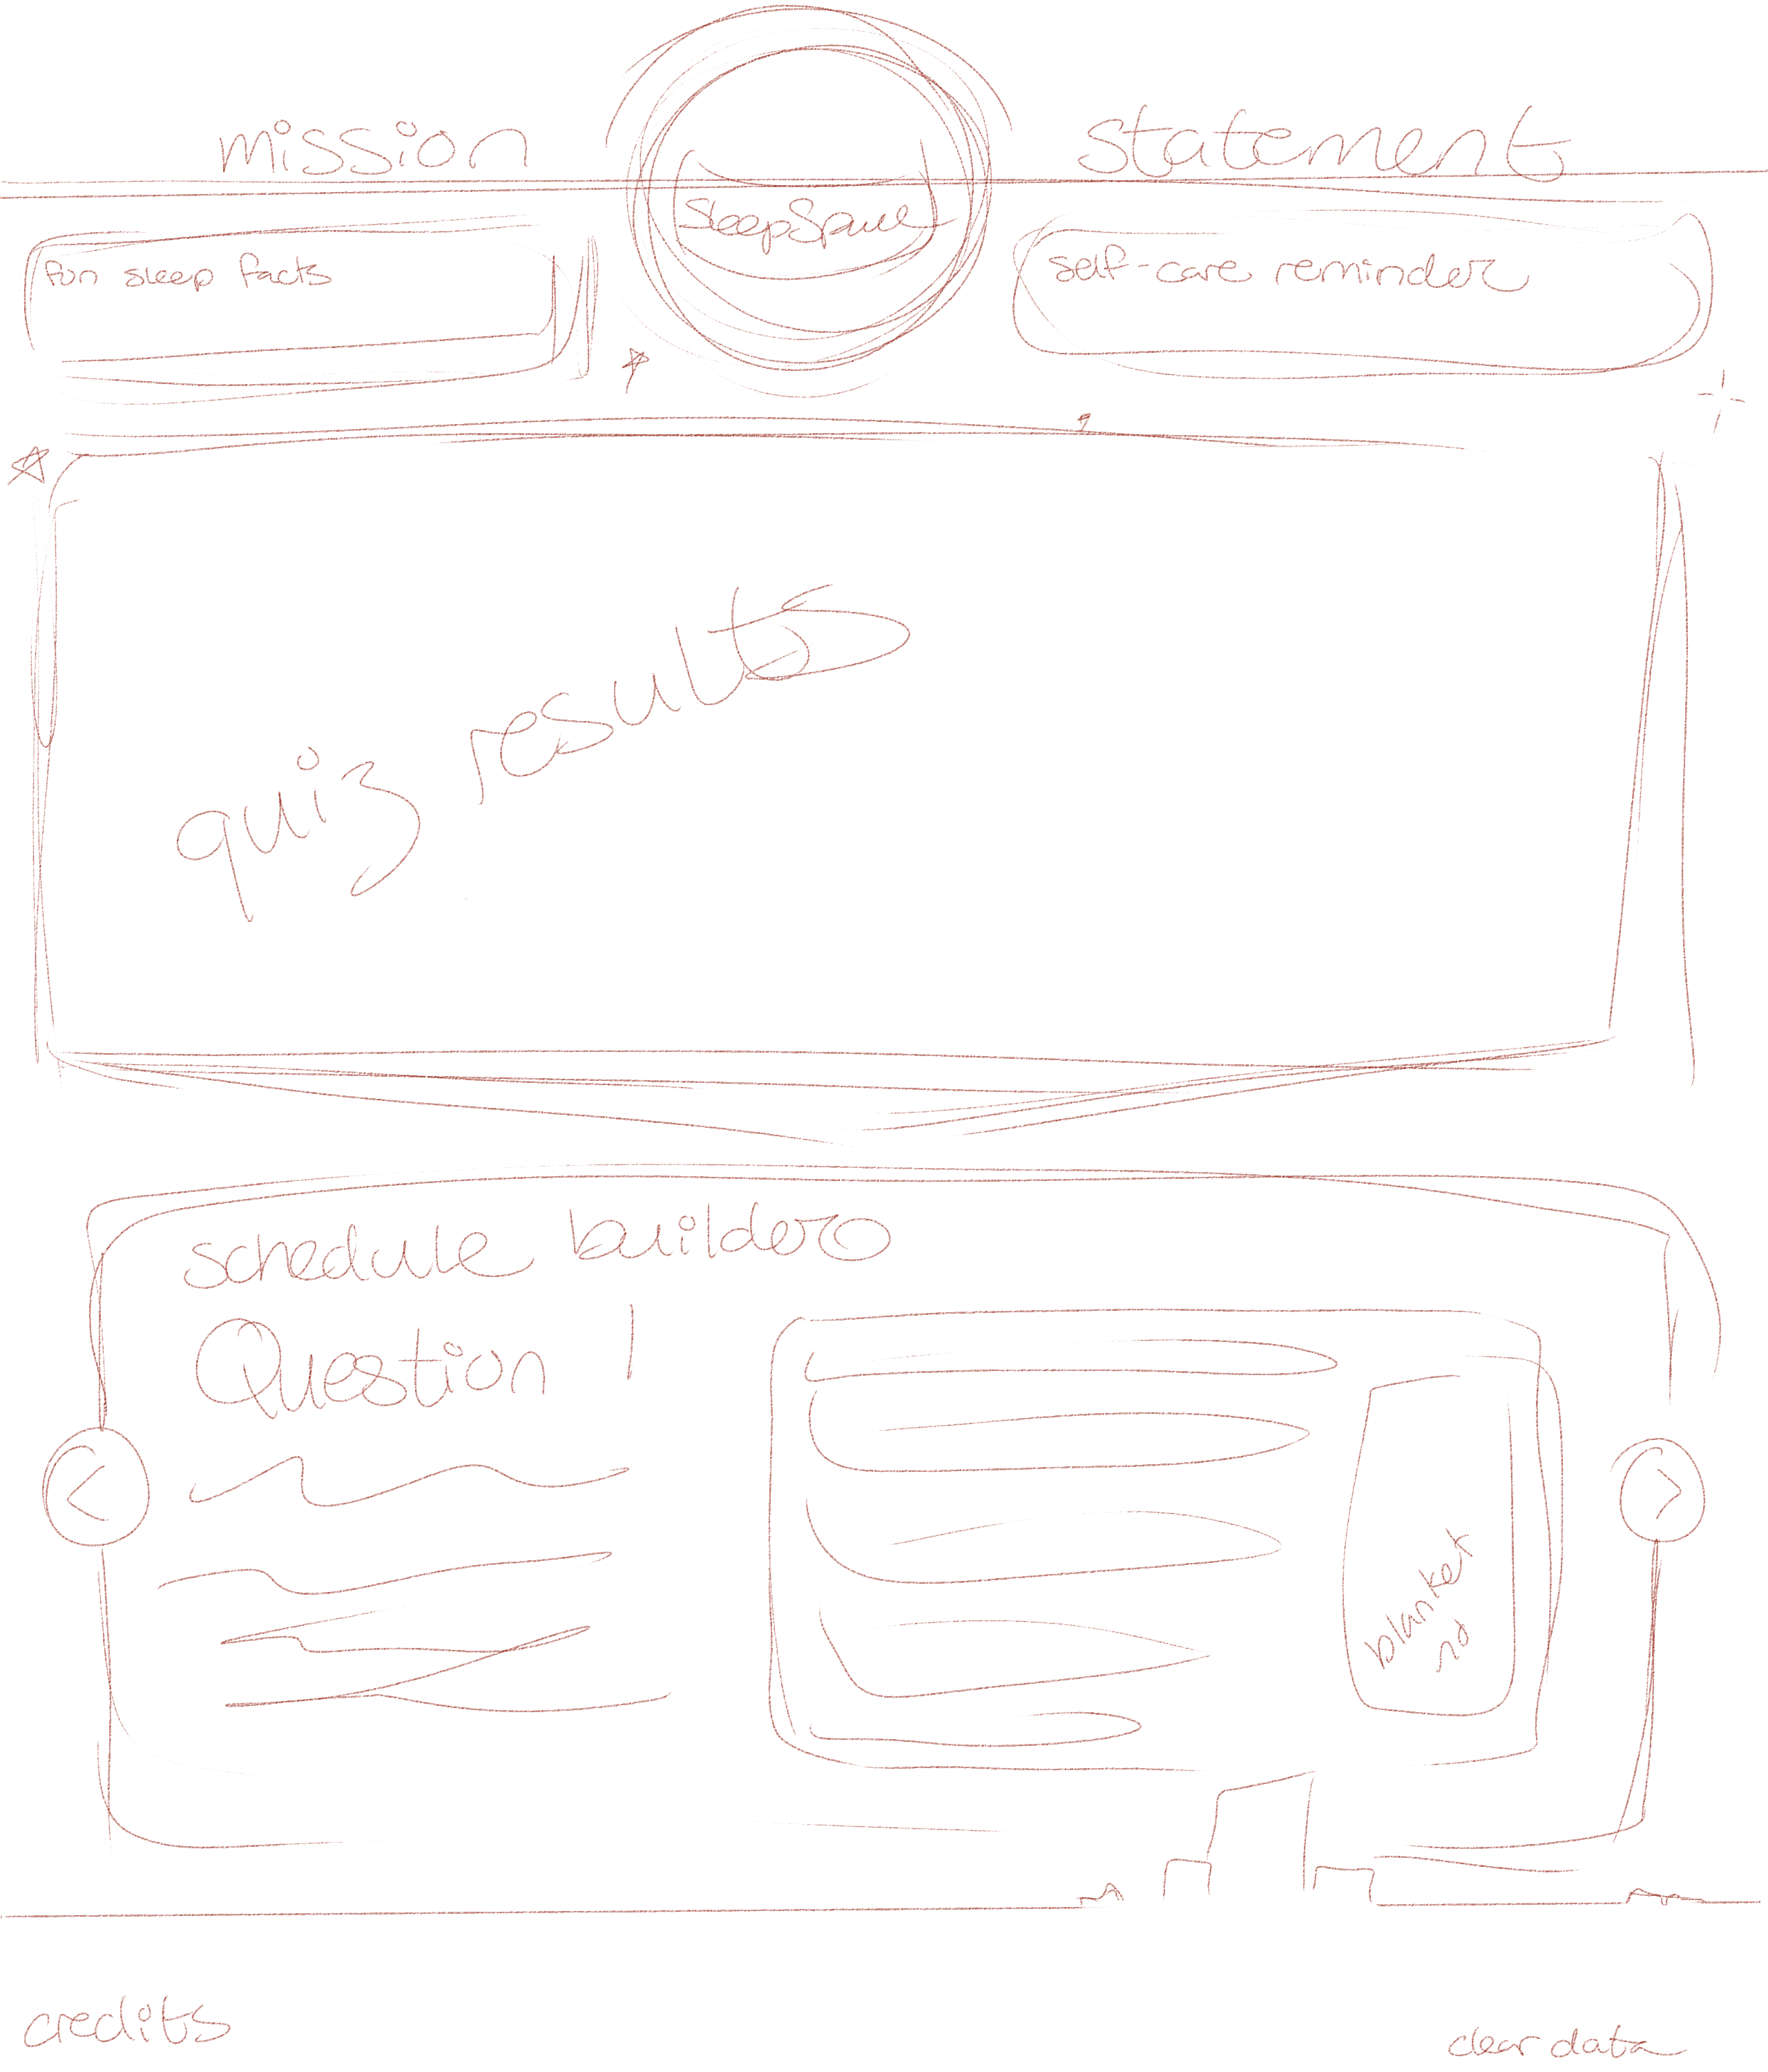 mission statement
SleepSpace
fun sleep facts
self-care reminder
quiz results
schedule builder
Question 1
<
>
blanket
credits
clear data